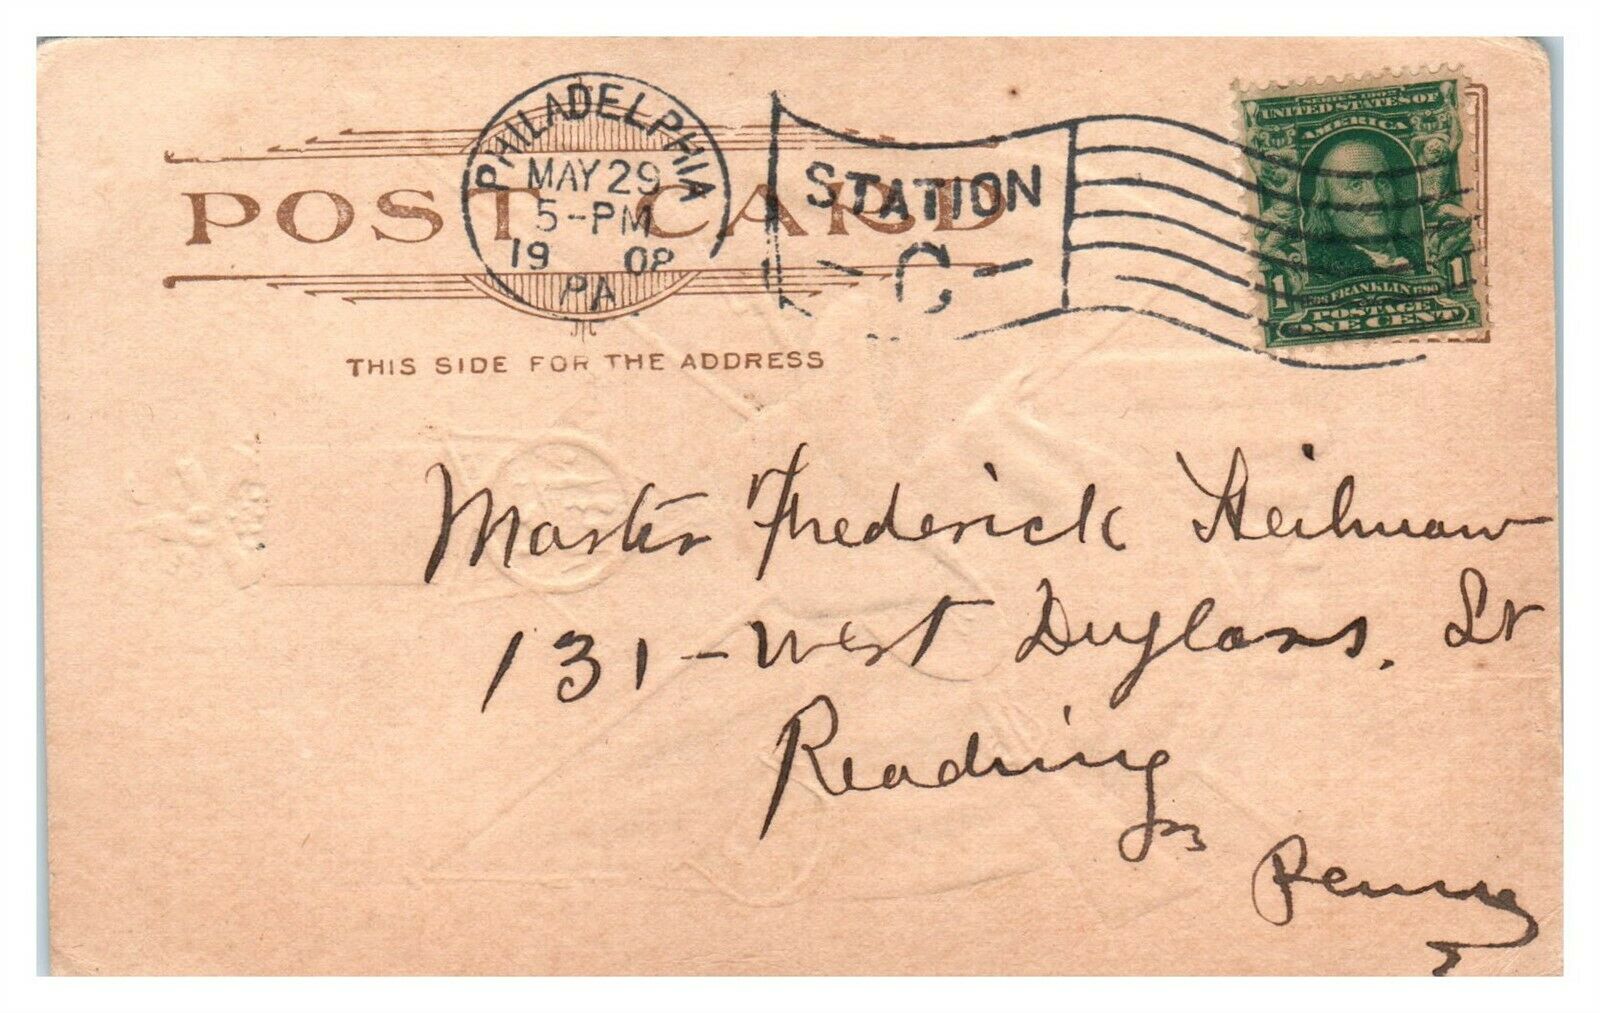 PHILADELPHIA
MAY 29
5-PM
19 08
PA
STATION
-C-
SERIES 1902
UNITED STATES OF
AMERICA
1 1
1706 FRANKLIN 1790
POSTAGE
ONE CENT
POST CARD
THIS SIDE FOR THE ADDRESS
Master Frederick Heilman
131-West Duglass. St
Reading
Penna